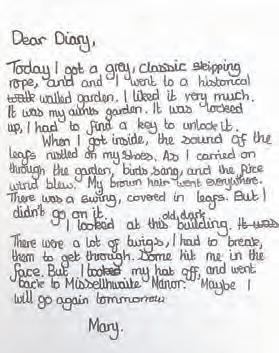 Dear Diary,
Today I got a grey, classic skipping
rope, and and I went to a historical
walled garden. I liked it very much.
It was my aunts garden. It was locked
up, I had to find a key to unlock it.
When I got inside, the sound of the
leafs rustled on my shoes. As I carried on
through the garden, birds sang, and the
wind blew. My brown hair went everywhere.
There was a swing, covered in leafs. But I
didn't go on it.
I looked at this old, dark building. It was
There were a lot of twigs, I had to break,
them to get through. Some hit me in the
face. But I took my hat off, and went
back to Misselthwaite Manor. Maybe I
will go again tommorrow
Mary.